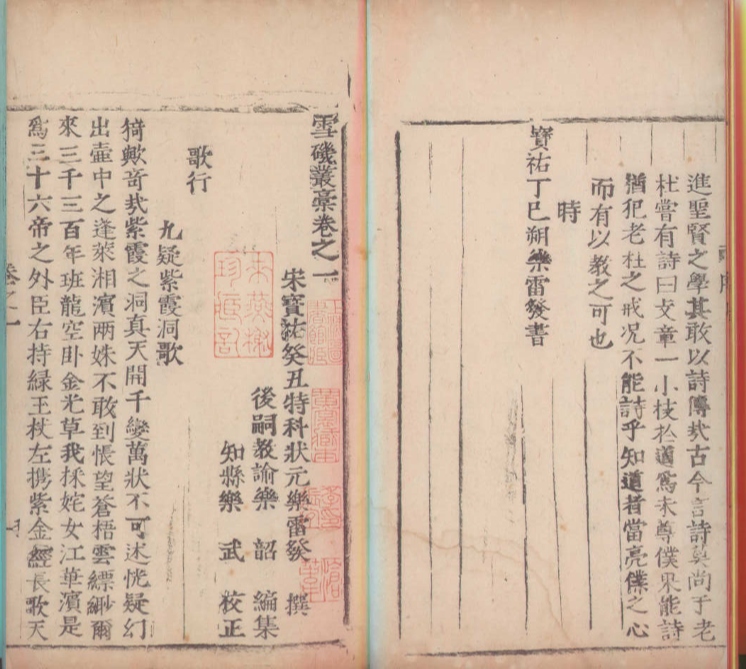 進聖賢之學其敢以詩傳哉古今言詩莫尚于老
杜嘗有詩曰文章一小枝於道爲未尊僕果能詩
猶犯老杜之戒况不能詩乎知道者當亮僕之心
而有以教之可也
時
寶祐丁巳朔樂雷發書
雪磯叢藁卷之一
宋寶祐癸丑特科狀元樂雷發 撰
後嗣教諭樂 韶 編集
知縣樂 武 校正
歌行
九疑紫霞洞歌
猗歟奇哉紫霞之洞真天開千變萬狀不可述恍疑幻
出壺中之逢萊湘濱兩姝不敢到悵望蒼梧雲縹緲爾
來三千三百年班龍空卧金光草我採姹女江華濱是
爲三十六帝之外臣右持緑玉杖左携紫金經長歌天
卷之一